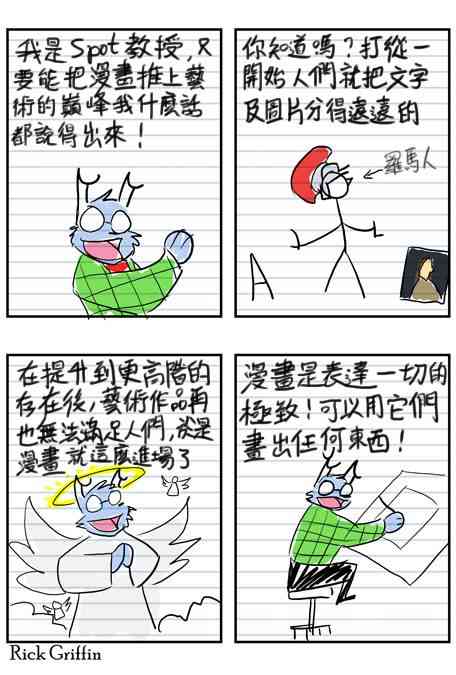 我是Spot教授,只
要能把漫畫推上藝
術的巔峰我什麼話
都說得出來!
你知道嗎?打從一
開始人們就把文字
及圖片分得遠遠的
羅馬人
A
在提升到更高階的
存在後,藝術作品再
也無法滿足人們,於是
漫畫就這麼進場了
漫畫是表達一切的
極致!可以用它們
畫出任何東西!
Rick Griffin